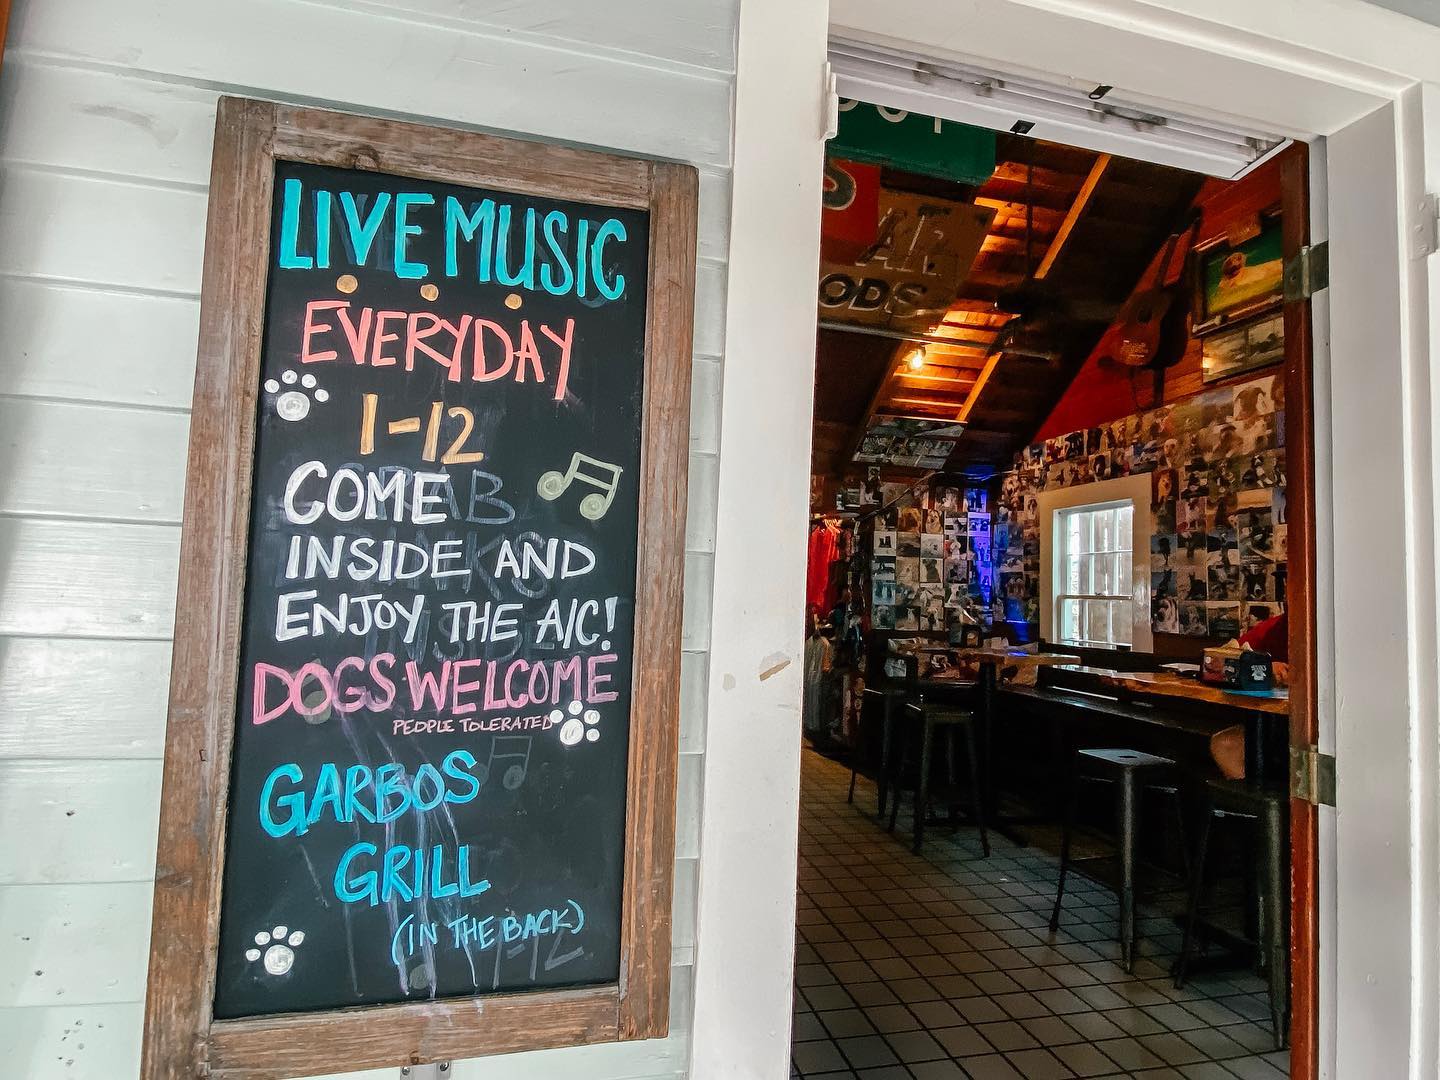 LIVE MUSIC
EVERYDAY
1-12
COME
INSIDE AND
ENJOY THE A/C!
DOGS WELCOME
PEOPLE TOLERATED
GARBOS
GRILL
(IN THE BACK)
ODS